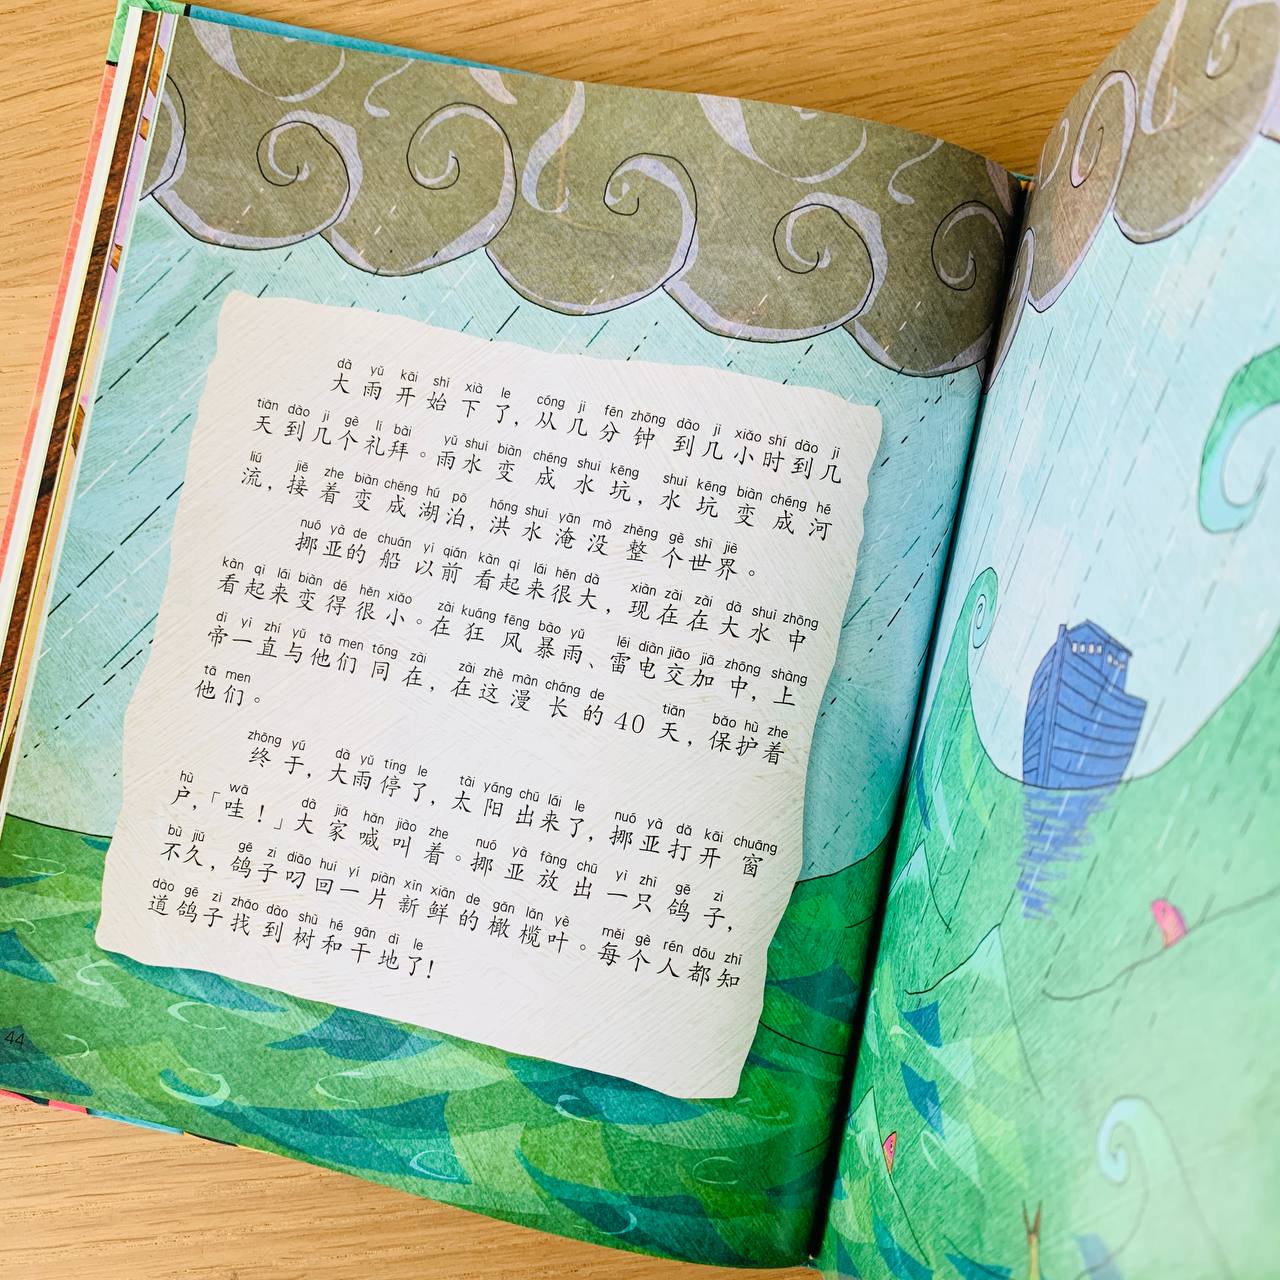 dà yǔ kāi shǐ xià le cóng jǐ fēn zhōng dào jǐ xiǎo shí dào jǐ
大雨开始下了，从几分钟到几小时到几
tiān dào jǐ gè lǐ bài yǔ shuǐ biàn chéng shuǐ kēng shuǐ kēng biàn chéng hé
天到几个礼拜。雨水变成水坑，水坑变成河
liú jiē zhe biàn chéng hú pō hóng shuǐ yān mò zhěng gè shì jiè
流，接着变成湖泊，洪水淹没整个世界。
nuó yà de chuán yǐ qián kàn qǐ lái hěn dà xiàn zài zài dà shuǐ zhōng
挪亚的船以前看起来很大，现在在大水中
kàn qǐ lái biàn dé hěn xiǎo zài kuáng fēng bào yǔ léi diàn jiāo jiā zhōng shàng
看起来变得很小。在狂风暴雨、雷电交加中，上
dì yī zhí yǔ tā men tóng zài zài zhè màn cháng de tiān bǎo hù zhe
帝一直与他们同在，在这漫长的40天，保护着
tā men
他们。
zhōng yú dà yǔ tíng le tài yáng chū lái le nuó yà dǎ kāi chuāng
终于，大雨停了，太阳出来了，挪亚打开窗
hù wā dà jiā hǎn jiào zhe nuó yà fàng chū yì zhī gē zi
户，「哇！」大家喊叫着。挪亚放出一只鸽子，
bù jiǔ gē zi diāo huí yí piàn xīn xiān de gǎn lǎn yè měi gè rén dōu zhī
不久，鸽子叼回一片新鲜的橄榄叶。每个人都知
dào gē zi zhǎo dào shù hé gān dì le
道鸽子找到树和干地了！
44